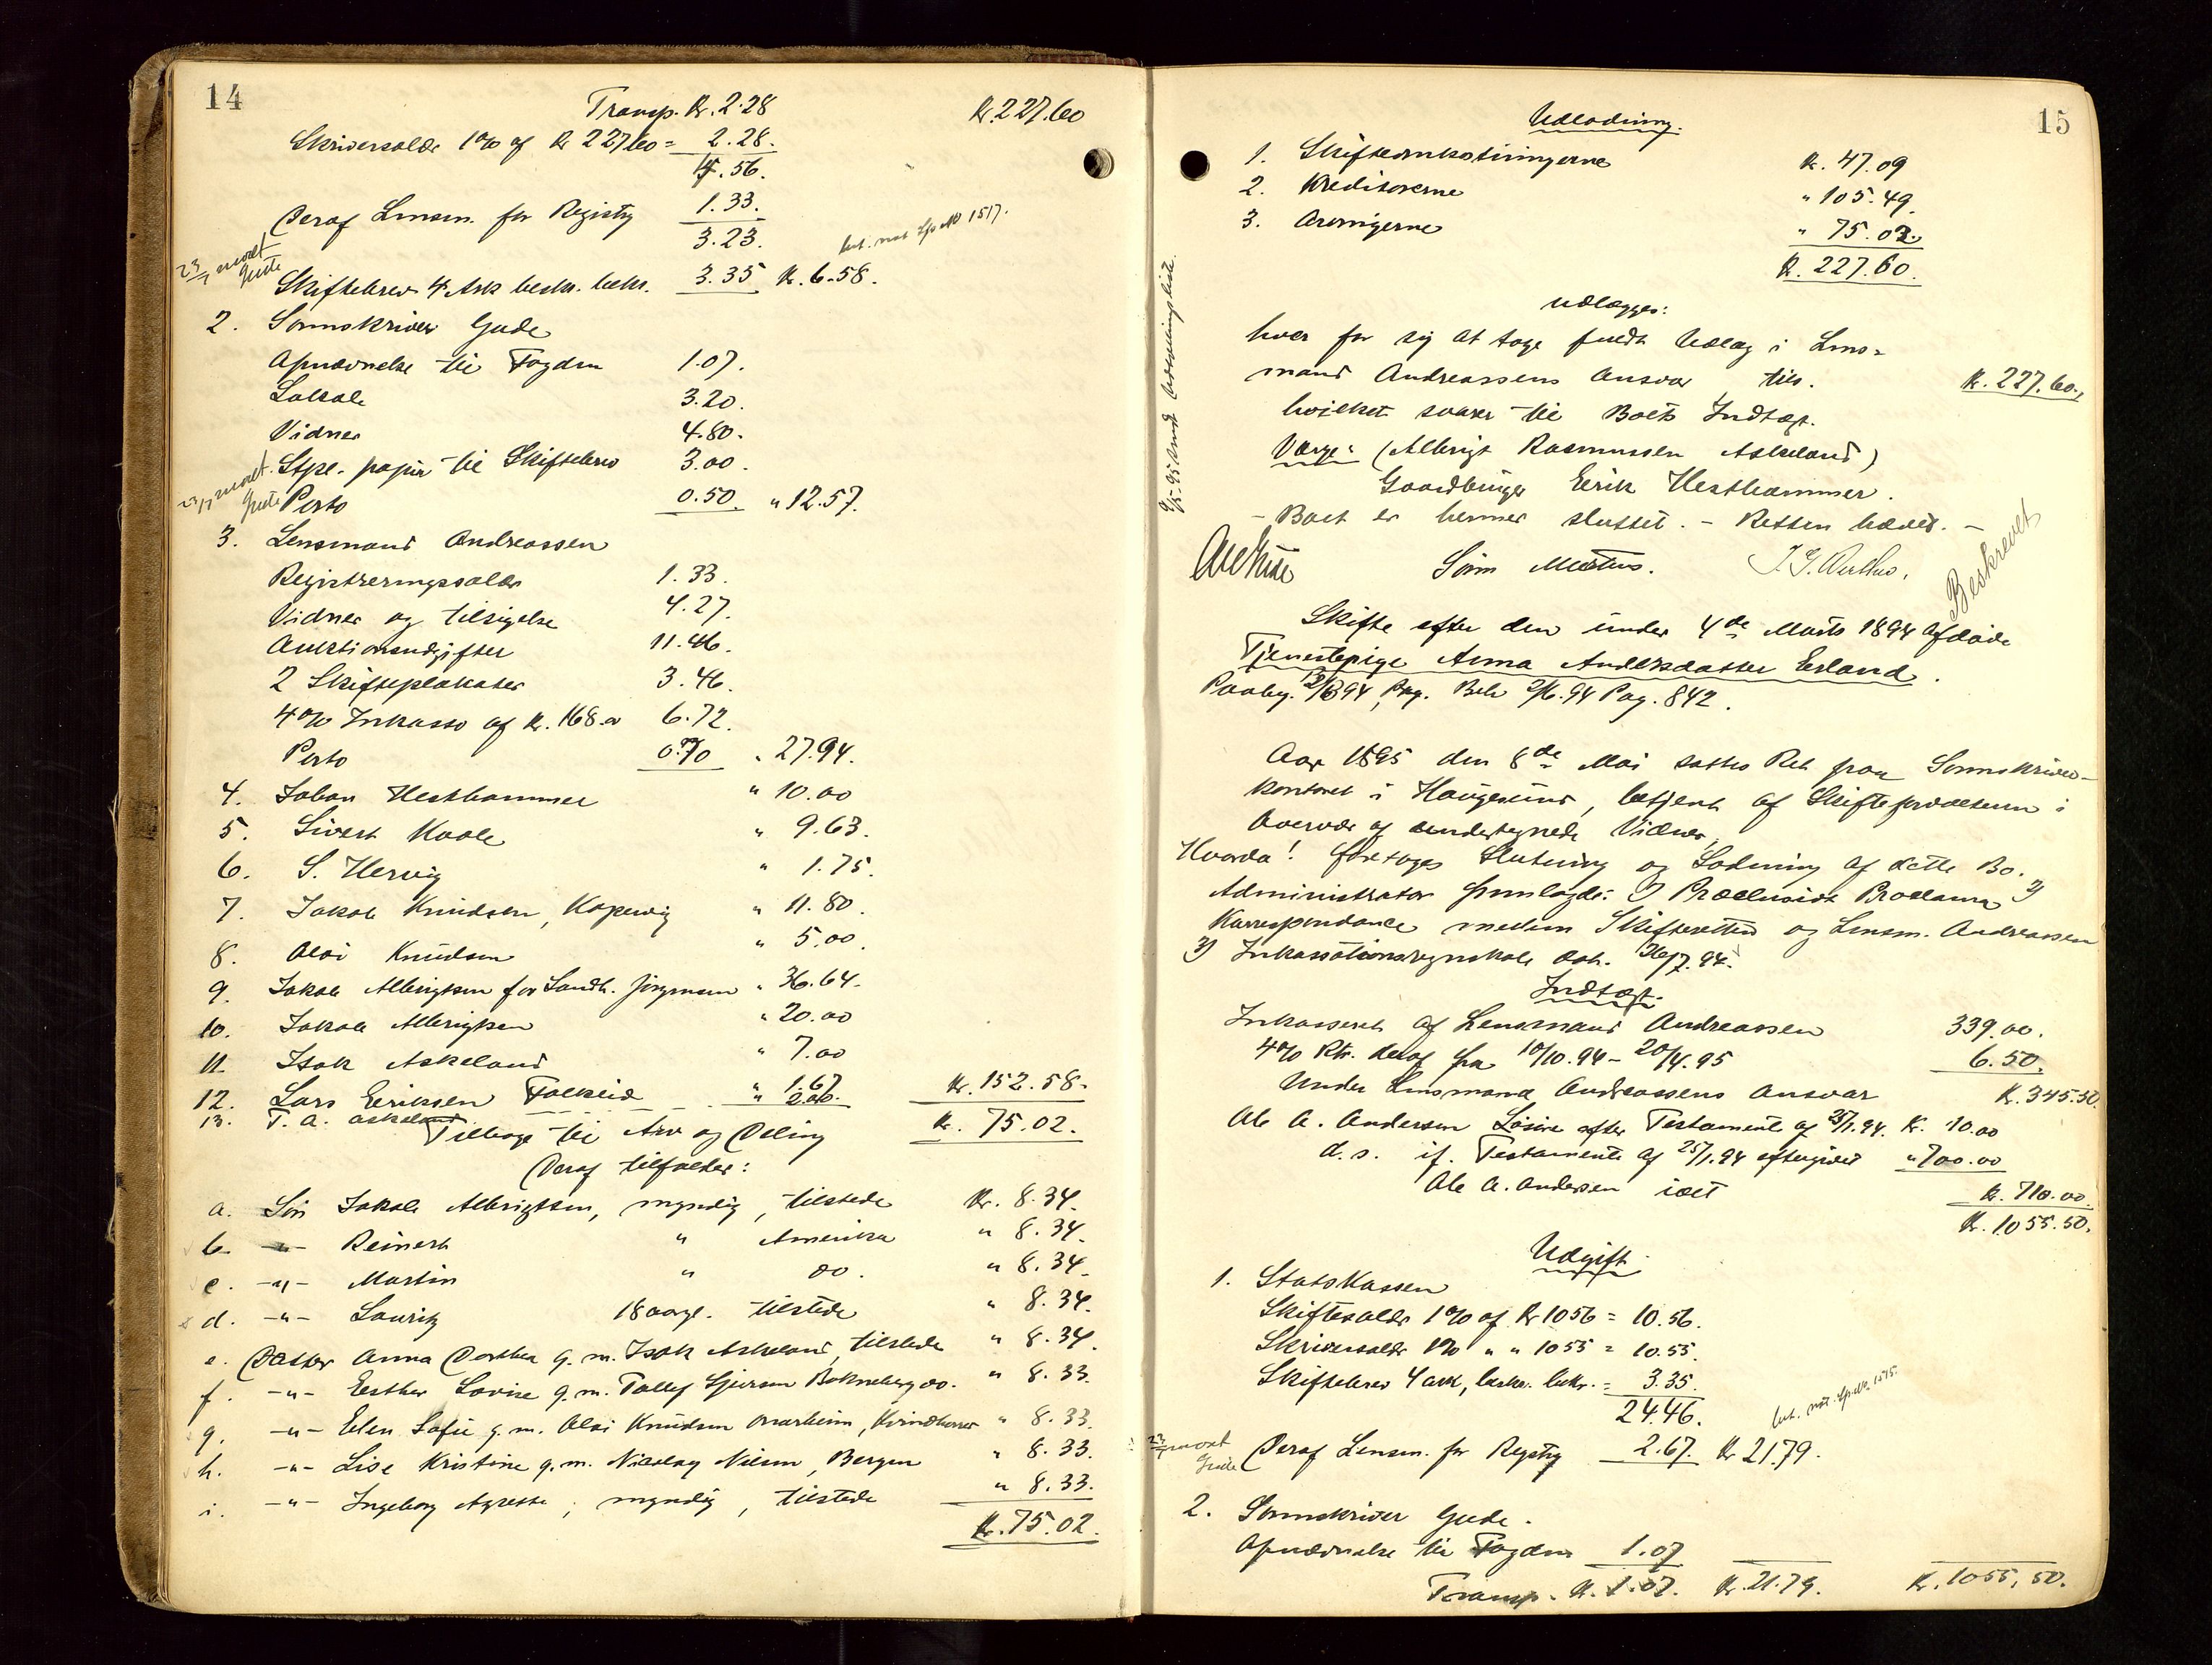 14
Transp. Kr. 2.28 Kr. 227.60
Skriversalær 1% af Kr 227.60 = 2.28.
4.56.
Deraf Lensm. for Registrg 1.33.
3.23.
Skiftebrev 4 Ark beskr. bekr. 3.35 Kr. 6.58.
2. Sorenskriver Gude
Opnævnelse til Fogden 1.07.
Lokale 3.20.
Vidner 4.80.
Stpl. papir til Skiftebrev 3.00.
Porto 0.50. " 12.57.
3. Lensmand Andreassen
Registreringssalær 1.33.
Vidner og tilsigelse 4.27.
Auktionsudgifter 11.46.
2 Skifteplakater 3.46.
4% Inkasso af Kr. 168.00 6.72.
Porto 0.70 " 27.94.
4. Johan Hesthammer " 10.00
5. Sivert Kvale " 9.63.
6. S. Hervig " 1.75.
7. Jakob Knudsen, Kopervig " 11.80.
8. Olai Knudsen " 5.00.
9. Jakob Albrigtsen for Landh. Jörgensen " 36.64.
10. Jakob Albrigtsen " 20.00
11. Isak Askeland " 7.00
12. Lars Eeriksen Falkeid " 1.67 Kr. 152.58.
13. T. A. Askeland " 2.00.
Tilbage til Arv og Deling Kr. 75.02.
Deraf tilfalder:
a. Sön Jakob Albrigtsen, myndig, tilstede Kr. 8.34.
b. -"- Reinert " Amerika " 8.34.
c. -"- Martin " do. " 8.34.
d. -"- Lauritz 18 aarg. tilstede " 8.34.
e. Datter Anna Dorthea g. m. Isak Askeland, tilstede " 8.34.
f. -"- Esther Lovise g. m. Tollef Sjursen Bokneberg do. " 8.33.
g. -"- Elen Sofie g. m. Olai Knudsen Onarheim, Kvindherred " 8.33.
h. -"- Lise Kristine g. m. Nicolay Nilsen, Bergen " 8.33.
i. -"- Ingeborg Agrethe, myndig, tilstede " 8.33.
Kr. 75.02.
15
Udlodning:
1. Skifteomkostningerne Kr. 47.09
2. Kreditorerne " 105.49.
3. Arvingerne " 75.02.
Kr. 227.60.
udlægges:
hver for sig at tage fuldt Udlæg i Lens-
mand Andreassens Ansvar til. Kr. 227.60.
hvilket svarer til Boets Indtægt.
Værge: (Albrigt Rasmussen Askeland)
Gaardbruger Eerik Hesthammer.
- Boet er hermed sluttet. - Retten hævet. -
Beskrevet
Skifte efter den under 4de Marts 1894 afdöde
Tjenestepige Anna Andersdatter Erland.
Paabeg. 12/3 94, Pag. Beh 2/6.94 Pag. 842.
Aar 1895 den 8de Mai sattes Ret paa Sorenskriver-
kontoret i Haugesund, betjent af Skifteforvalteren i
Overvær af undertegnede Vidner,
Hvorda! foretoges Slutning og Lodning af dette Bo.
Administrator fremlagde: 1) Præclusivt Proclama 2)
Korrespondance mellem Skifteretten og Lensm. Andreassen
3) Inkassationsregnskab dat. 16/7.94.
Indtægt.
Inkasseret af Lensmand Andreassen 339.00.
4% Rtr. deraf fra 10/10.94 - 20/4.95 6.50.
Under Lensmand Andreassens Ansvar Kr. 345.50.
Ole A. Andersen Lösöre efter Testamente af 25/1.94. Kr. 10.00
d. s. if. Testamente af 25/1.94 eftergivet " 700.00
Ole A. Andersen ialt Kr. 710.00.
Kr. 1055.50.
Udgift.
1. Statskassen
Skiftesalær 1% af Kr 1056 = 10.56.
Skriversalær 1% " " 1055 = 10.55.
Skiftebrev 4 ark, beskr. bekr. = 3.35.
24.46.
Deraf Lensm. for Regstrg 2.67. Kr 21.79.
2. Sorenskriver Gude.
Opnævnelse til Fogden 1.07
Transp. Kr. 1.07. Kr. 21.79. Kr. 1055,50.